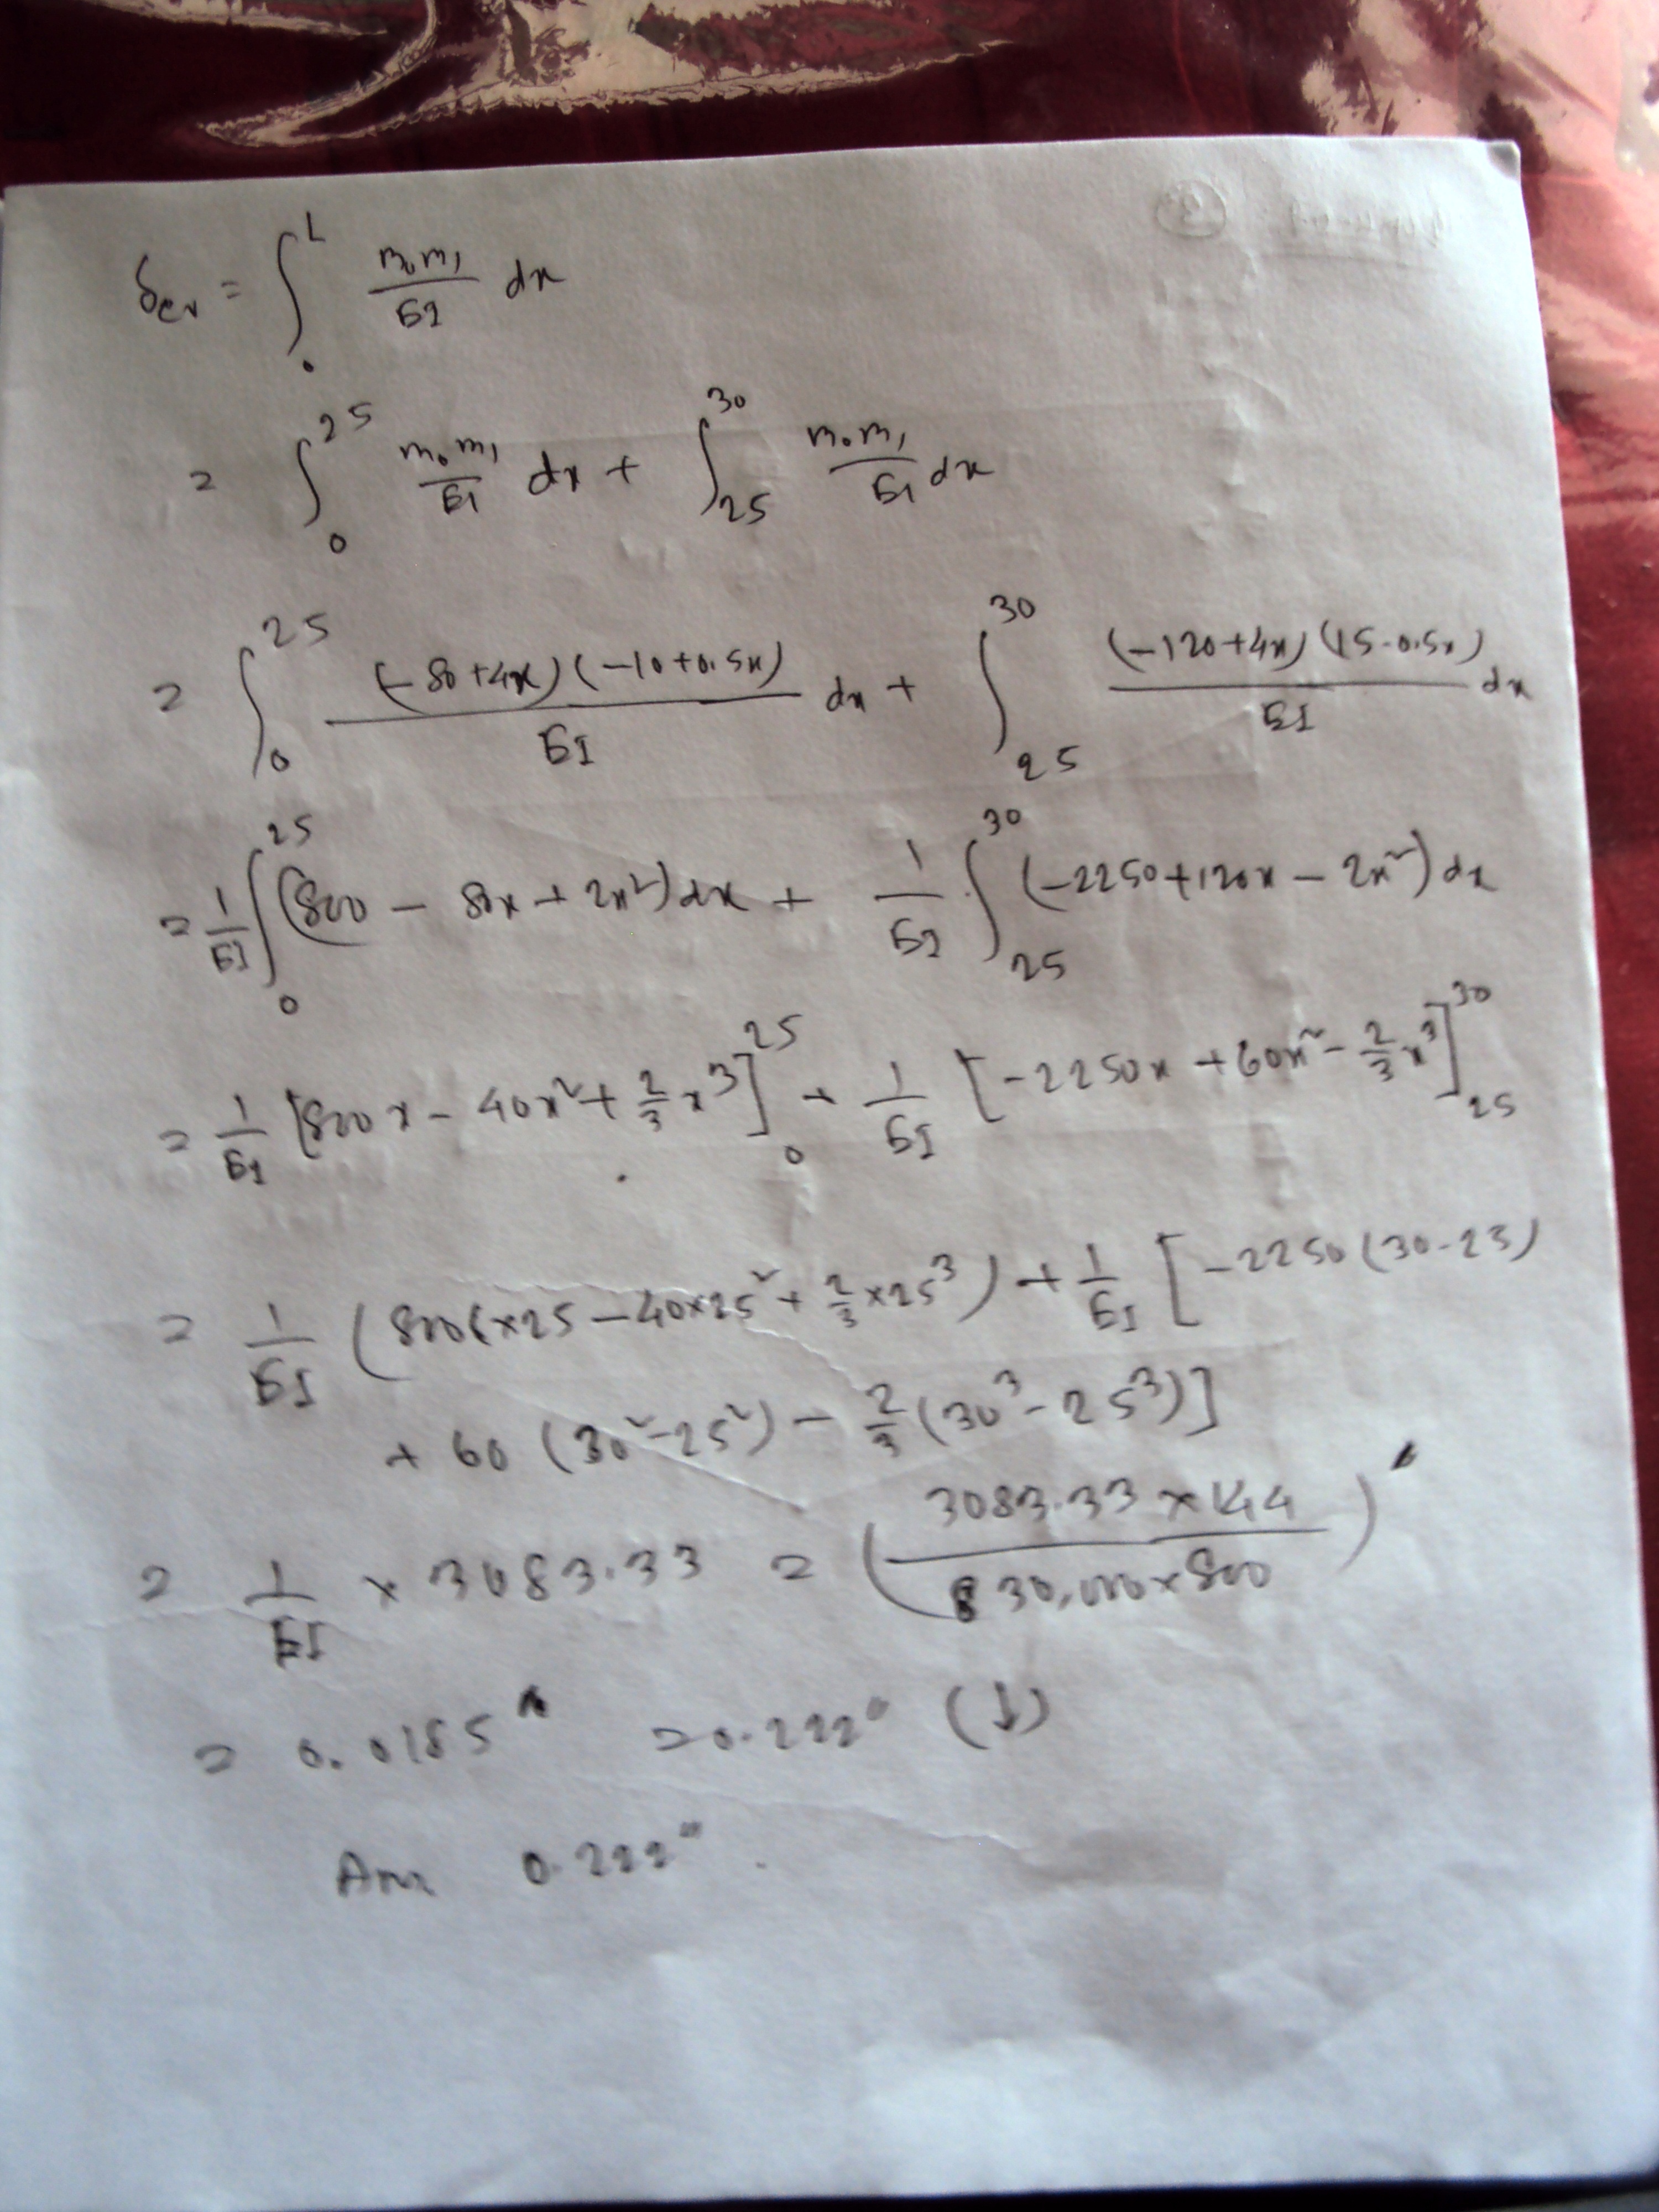 δcv = ∫₀ᴸ m₀m₁/EI dx
= ∫₀²⁵ m₀m₁/EI dx + ∫₂₅³⁰ m₀m₁/EI dx
= ∫₀²⁵ (-80+4x)(-10+0.5x)/EI dx + ∫₂₅³⁰ (-120+4x)(15-0.5x)/EI dx
= 1/EI ∫₀²⁵ (800 - 80x + 2x²)dx + 1/EI ∫₂₅³⁰ (-2250+120x - 2x²)dx
= 1/EI [800x - 40x² + 2/3 x³]₀²⁵ + 1/EI [-2250x + 60x² - 2/3 x³]₂₅³⁰
= 1/EI (800(×25 - 40×25² + 2/3 ×25³) + 1/EI [-2250(30-25)
+ 60 (30²-25²) - 2/3 (30³-25³)]
= 1/EI × 3083.33 = (3083.33 × 144 / 30,000×800)'
= 0.0185" = 0.222" (↓)
Ans 0.222".